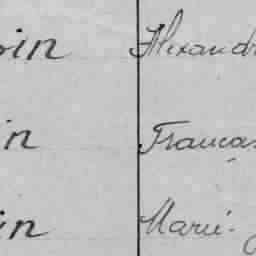 in Alexand
in França
in Marie-